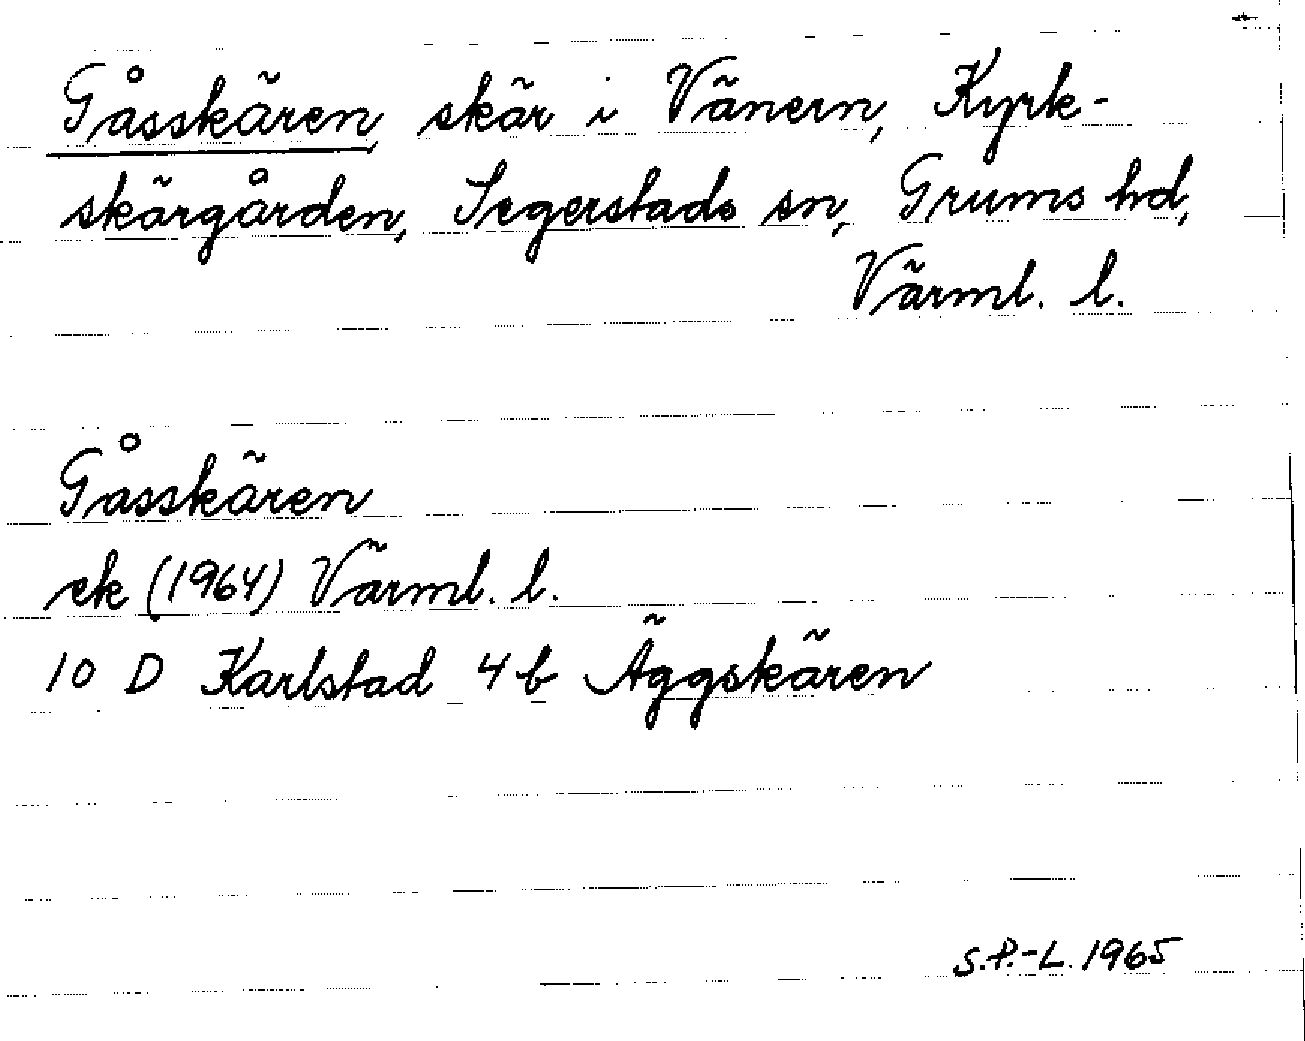 Gåsskären, skär i Vänern, Kyrk-
skärgården, Segerstads sn, Grums hd,
Värml. l.
Gåsskären
ek (1964) Värml. l.
10 D Karlstad 4 b Äggskären
S.P.-L. 1965